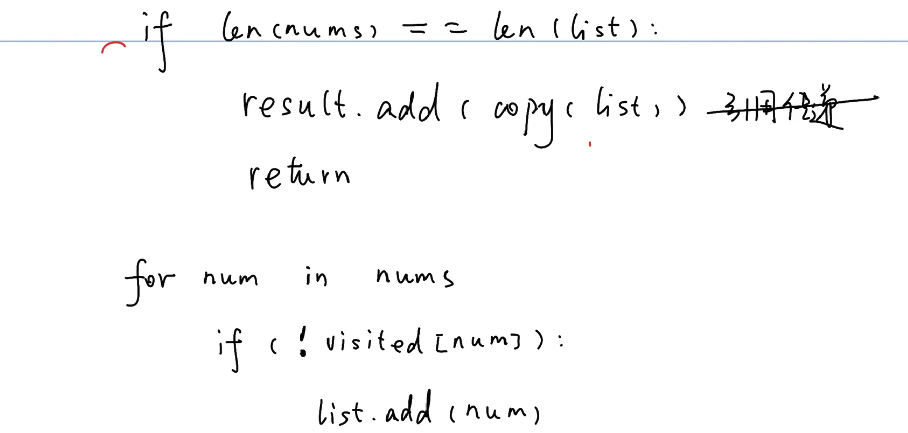 if len(nums) == len(list):
result.add(copy(list))
return
for num in nums
if (!visited[num]):
list.add(num)